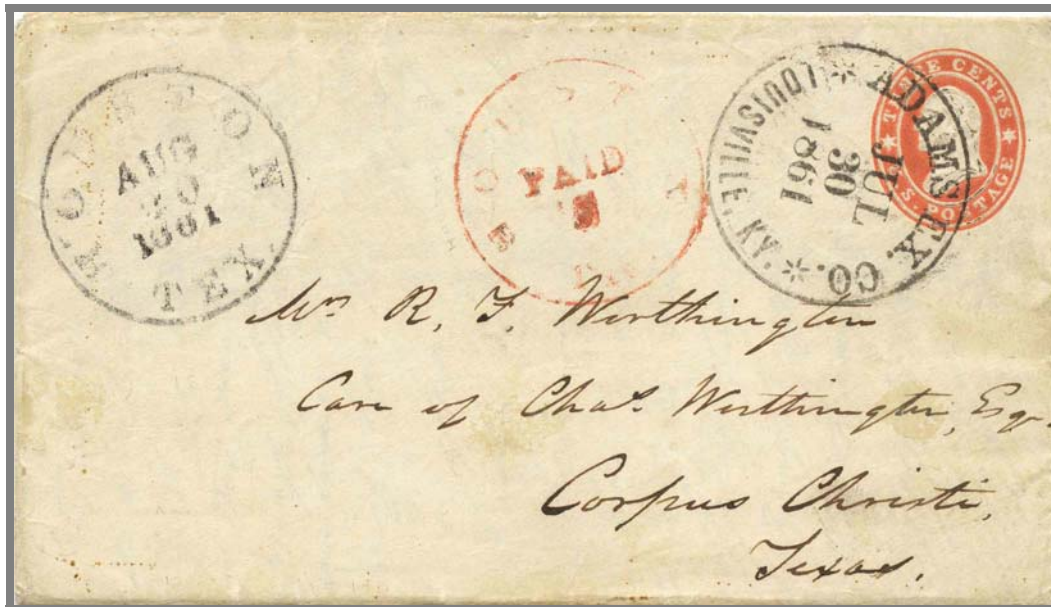 HOUSTON TEX.
AUG
20
1861
PAID
ADAMS EX. CO. * LOUISVILLE, KY. *
JUL
30
1861
THREE CENTS
U.S. POSTAGE
Mr R. F. Worthington
Care of Chas. Worthington, Esqr.
Corpus Christi,
Texas.